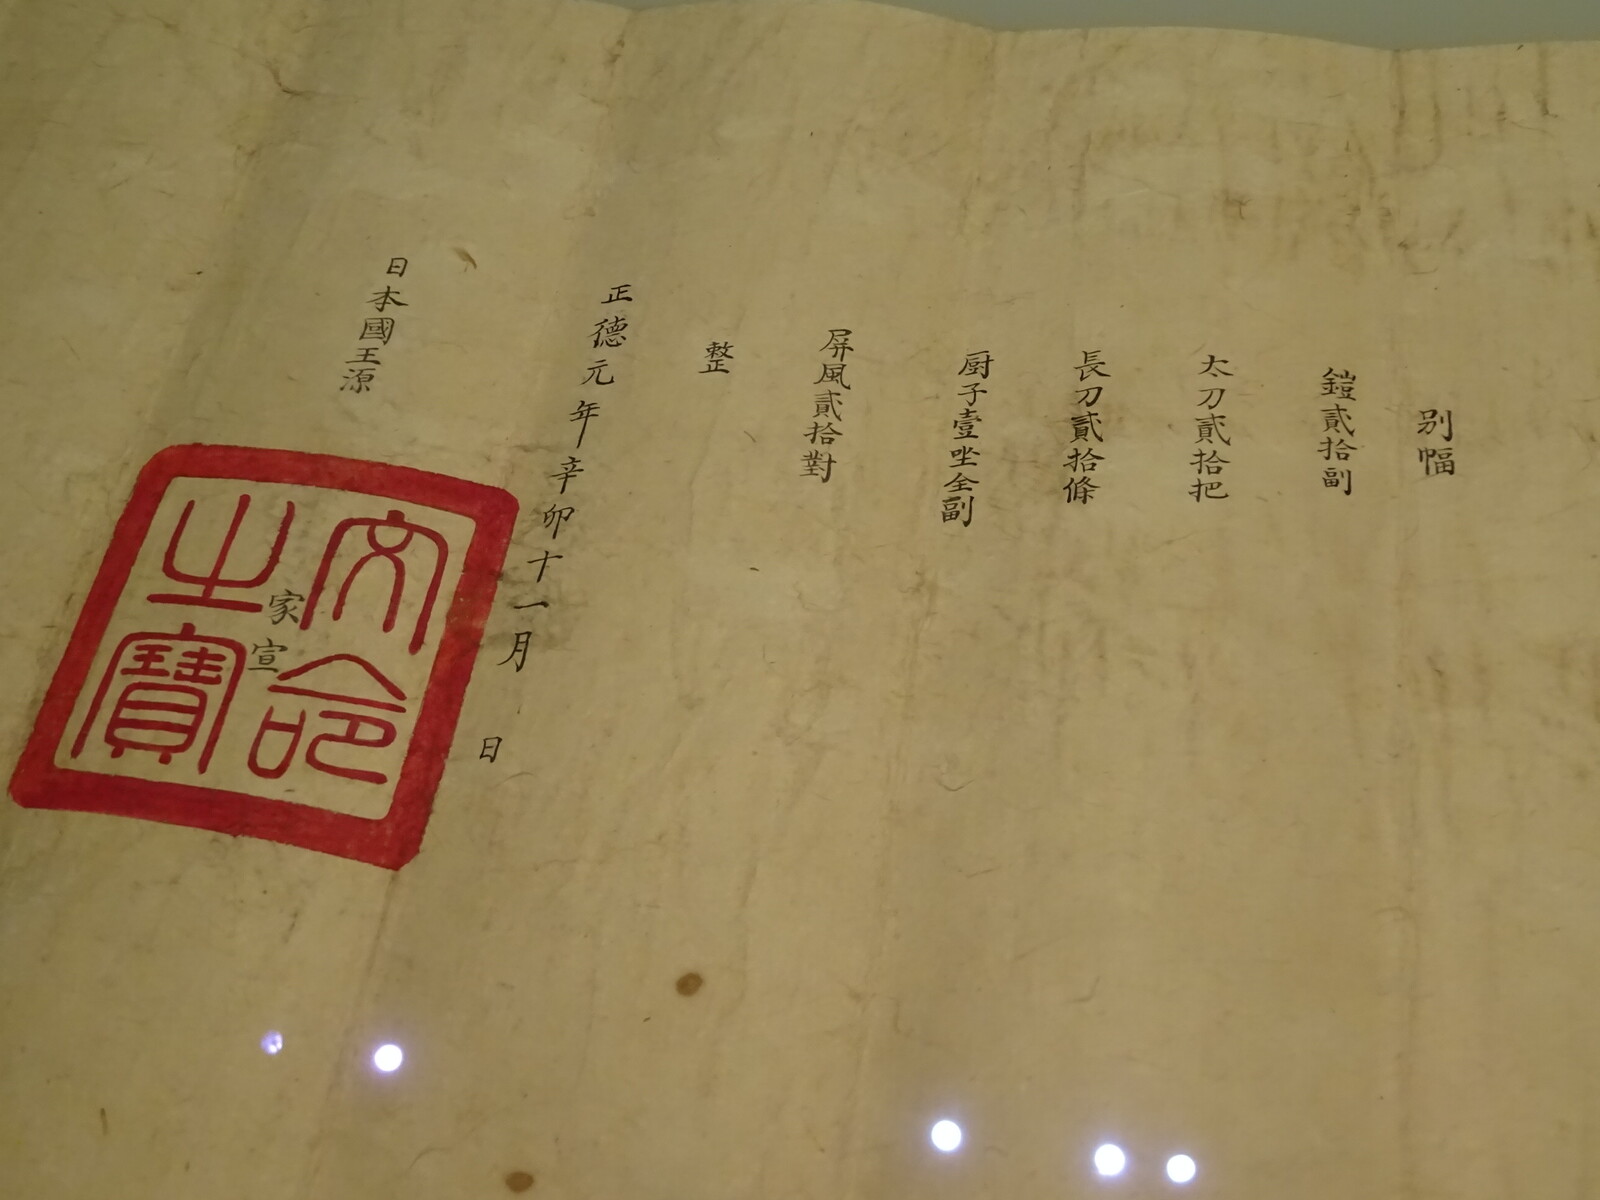 别幅
鎧貳拾副
太刀貳拾把
長刀貳拾條
厨子壹坐全副
屏風貳拾對
整
正德元年辛卯十一月日
日本國王源家宣
文命之寶